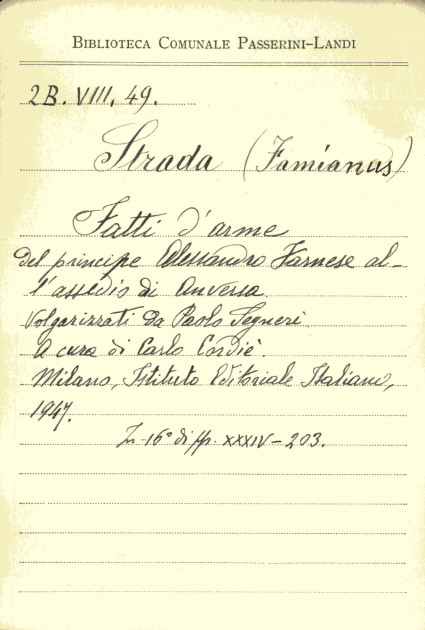 Biblioteca Comunale Passerini-Landi
2B. VIII. 49.
Strada (Famianus)
Fatti d'arme
del principe Alessandro Farnese al-
l'assedio di Anversa.
Volgarizzati da Paolo Segneri.
A cura di Carlo Cordiè.
Milano, Istituto Editoriale Italiano,
1947.
In-16° di pp. XXXIV-203.